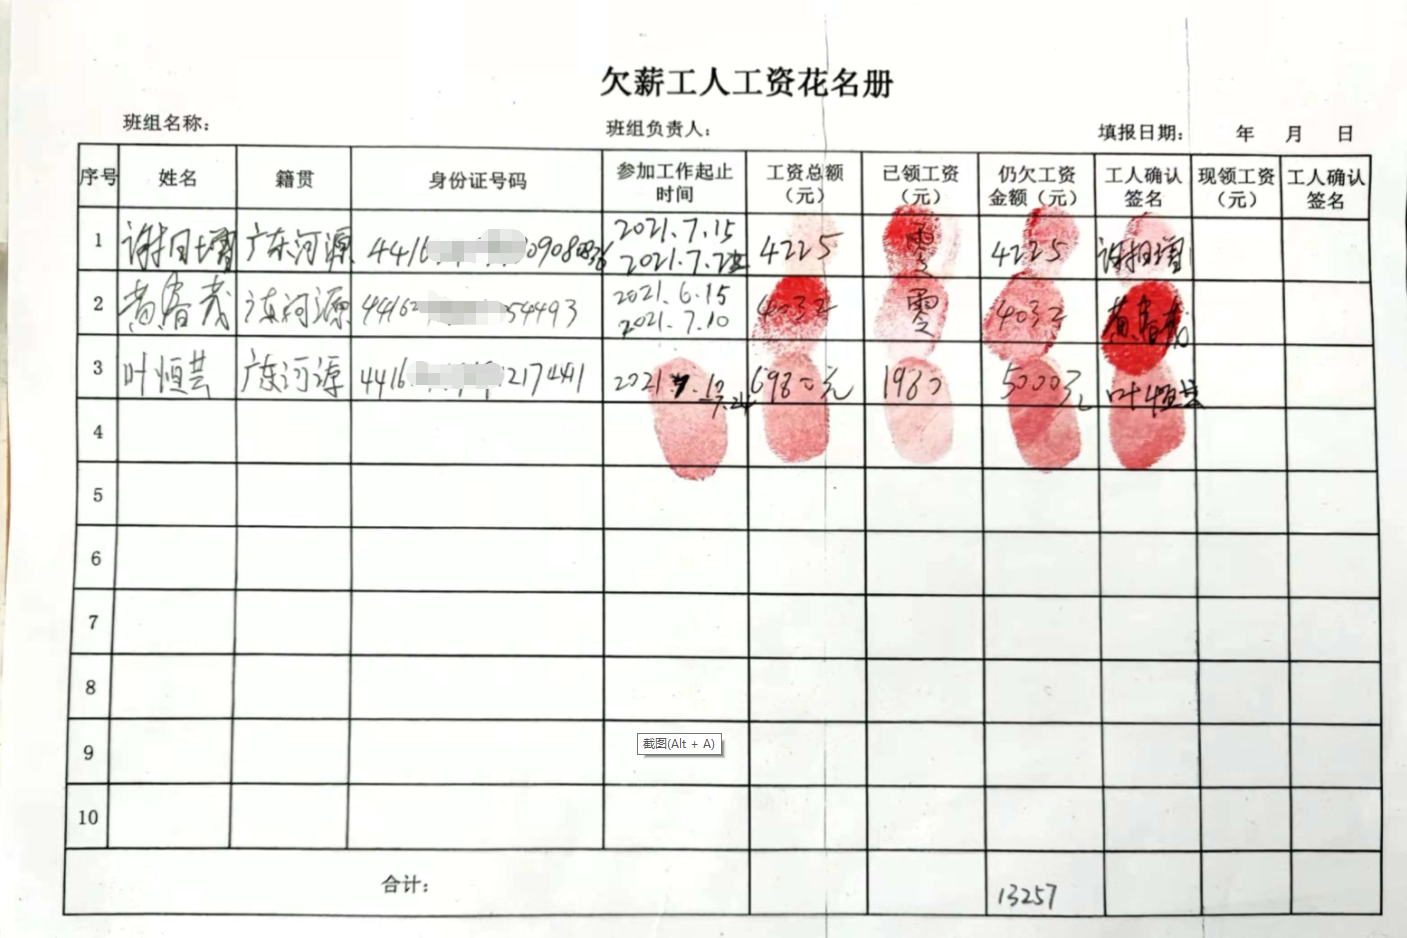 欠薪工人工资花名册
班组名称： 班组负责人： 填报日期： 年 月 日
序号 姓名 籍贯 身份证号码 参加工作起止时间 工资总额（元） 已领工资（元） 仍欠工资金额（元） 工人确认签名 现领工资（元） 工人确认签名
1 谢相增 广东河源 4416 090808 2021.7.15 4225 零 4225 谢相增
2021.7.2
2 黄春茂 广东河源 44162 54493 2021.6.15 4032 零 4032 黄春茂
2021.7.10
3 叶恒芸 广东河源 4416 217441 2021.7.10 6980元 1980 5000元 叶恒芸
-7.24
4
5
6
7
8
9
10
截图(Alt + A)
合计： 13257